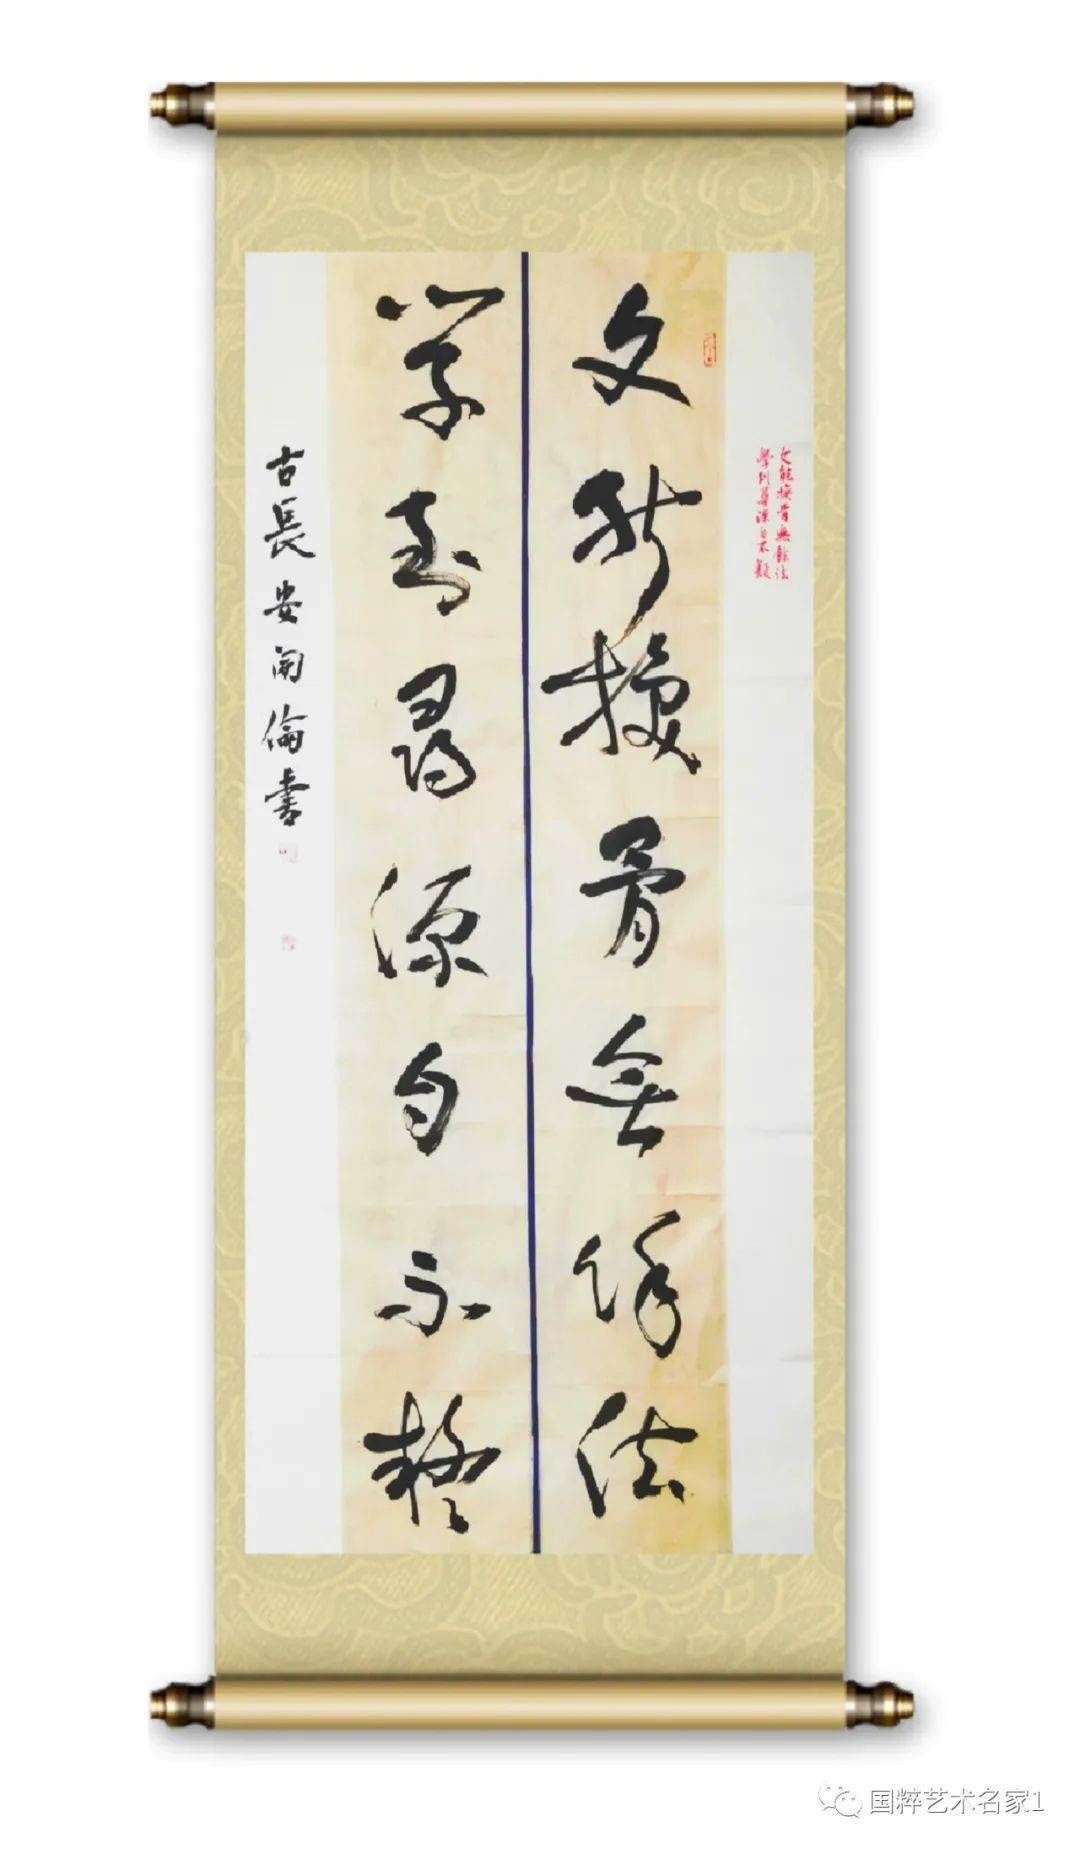 文能换骨無餘法
學到尋源自不疑
文能换骨無餘法
學到尋源自不疑
古長安開倫書
国粹艺术名家1